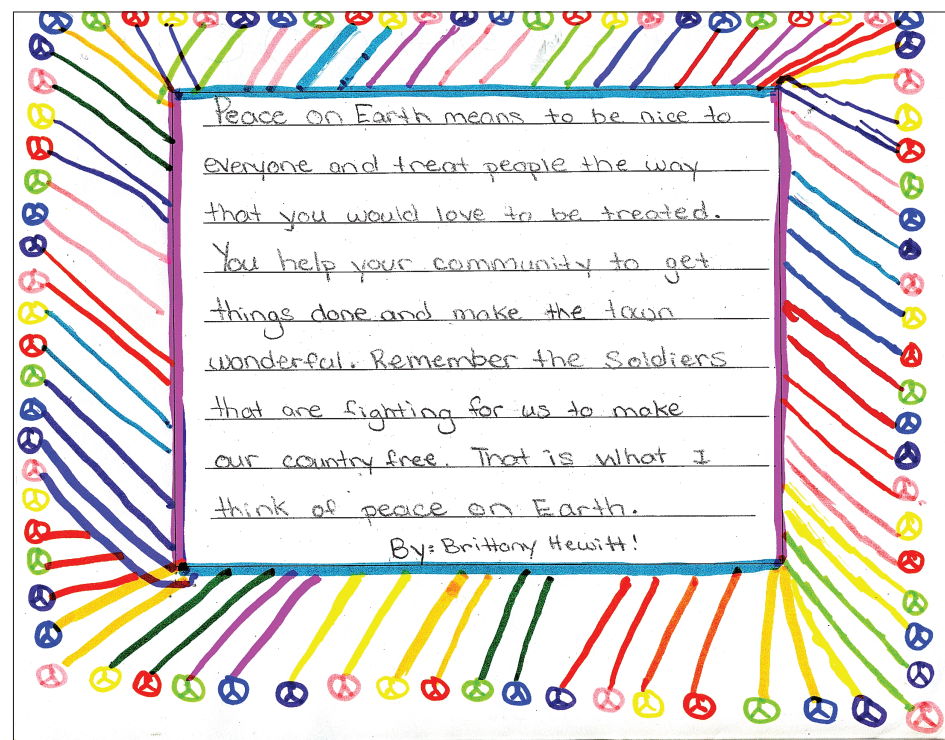 Peace on Earth means to be nice to
everyone and treat people the way
that you would love to be treated.
You help your community to get
things done and make the town
wonderful. Remember the Soldiers
that are fighting for us to make
our country free. That is what I
think of peace on Earth.
By: Brittany Hewitt!